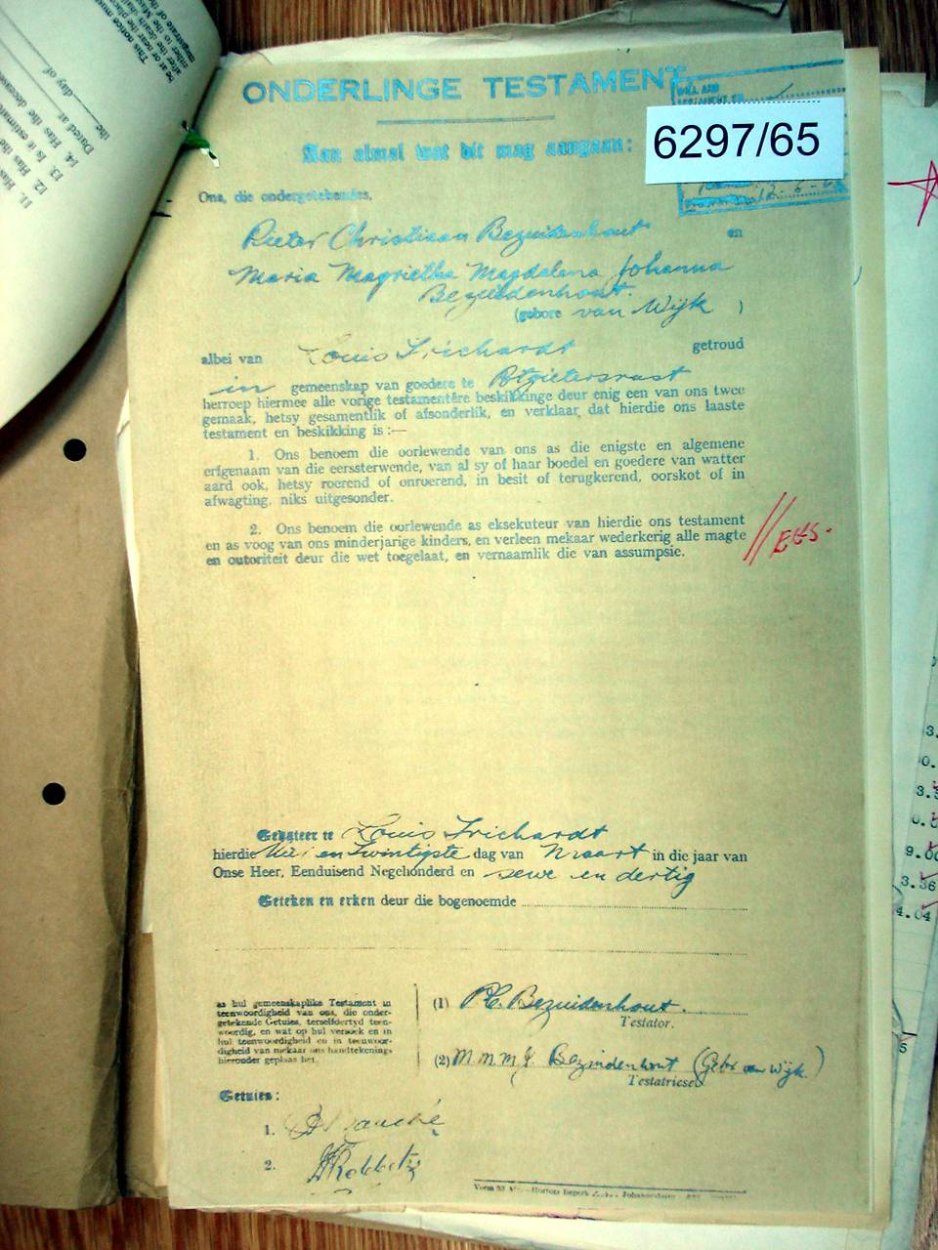 ONDERLINGE TESTAMENT
WILL AND
TESTAMENT
6297/65
Aan almal wat dit mag aangaan:
Ons, die ondergetekendes,
Pieter Christiaan Bezuidenhout en
Maria Magrietha Magdalena Johanna
Bezuidenhout.
(gebore van Wijk )
albei van Louis Trichardt getroud
in gemeenskap van goedere te Potgietersrust
herroep hiermee alle vorige testamentêre beskikkinge deur enig een van ons twee
gemaak, hetsy gesamentlik of afsonderlik, en verklaar dat hierdie ons laaste
testament en beskikking is :—
1. Ons benoem die oorlewende van ons as die enigste en algemene
erfgenaam van die eerssterwende, van al sy of haar boedel en goedere van watter
aard ook, hetsy roerend of onroerend, in besit of terugkerend, oorskot of in
afwagting, niks uitgesonder.
2. Ons benoem die oorlewende as eksekuteur van hierdie ons testament
en as voog van ons minderjarige kinders, en verleen mekaar wederkerig alle magte
en outoriteit deur die wet toegelaat, en vernaamlik die van assumpsie.
Gedateer te Louis Trichardt
hierdie en Twintigste dag van Maart in die jaar van
Onse Heer, Eenduisend Negehonderd en sewe en dertig
Geteken en erken deur die bogenoemde
as hul gemeenskaplike Testament in
teenwoordigheid van ons, die onder-
getekende Getuies, terselfdertyd teen-
woordig, en wat op hul versoek en in
hul teenwoordigheid en in teenwoor-
digheid van mekaar ons handtekenings
hieronder geplaas het.
(1) P.C. Bezuidenhout.
Testator.
(2) M M M J Bezuidenhout (Gebr van Wijk)
Testatriese
Getuies :
1.
2.
This notice must
day of
Dated at
the
14. Has
13. Is
12. Has
11. Has
3.
0.
9.00
3.36
4.04
5